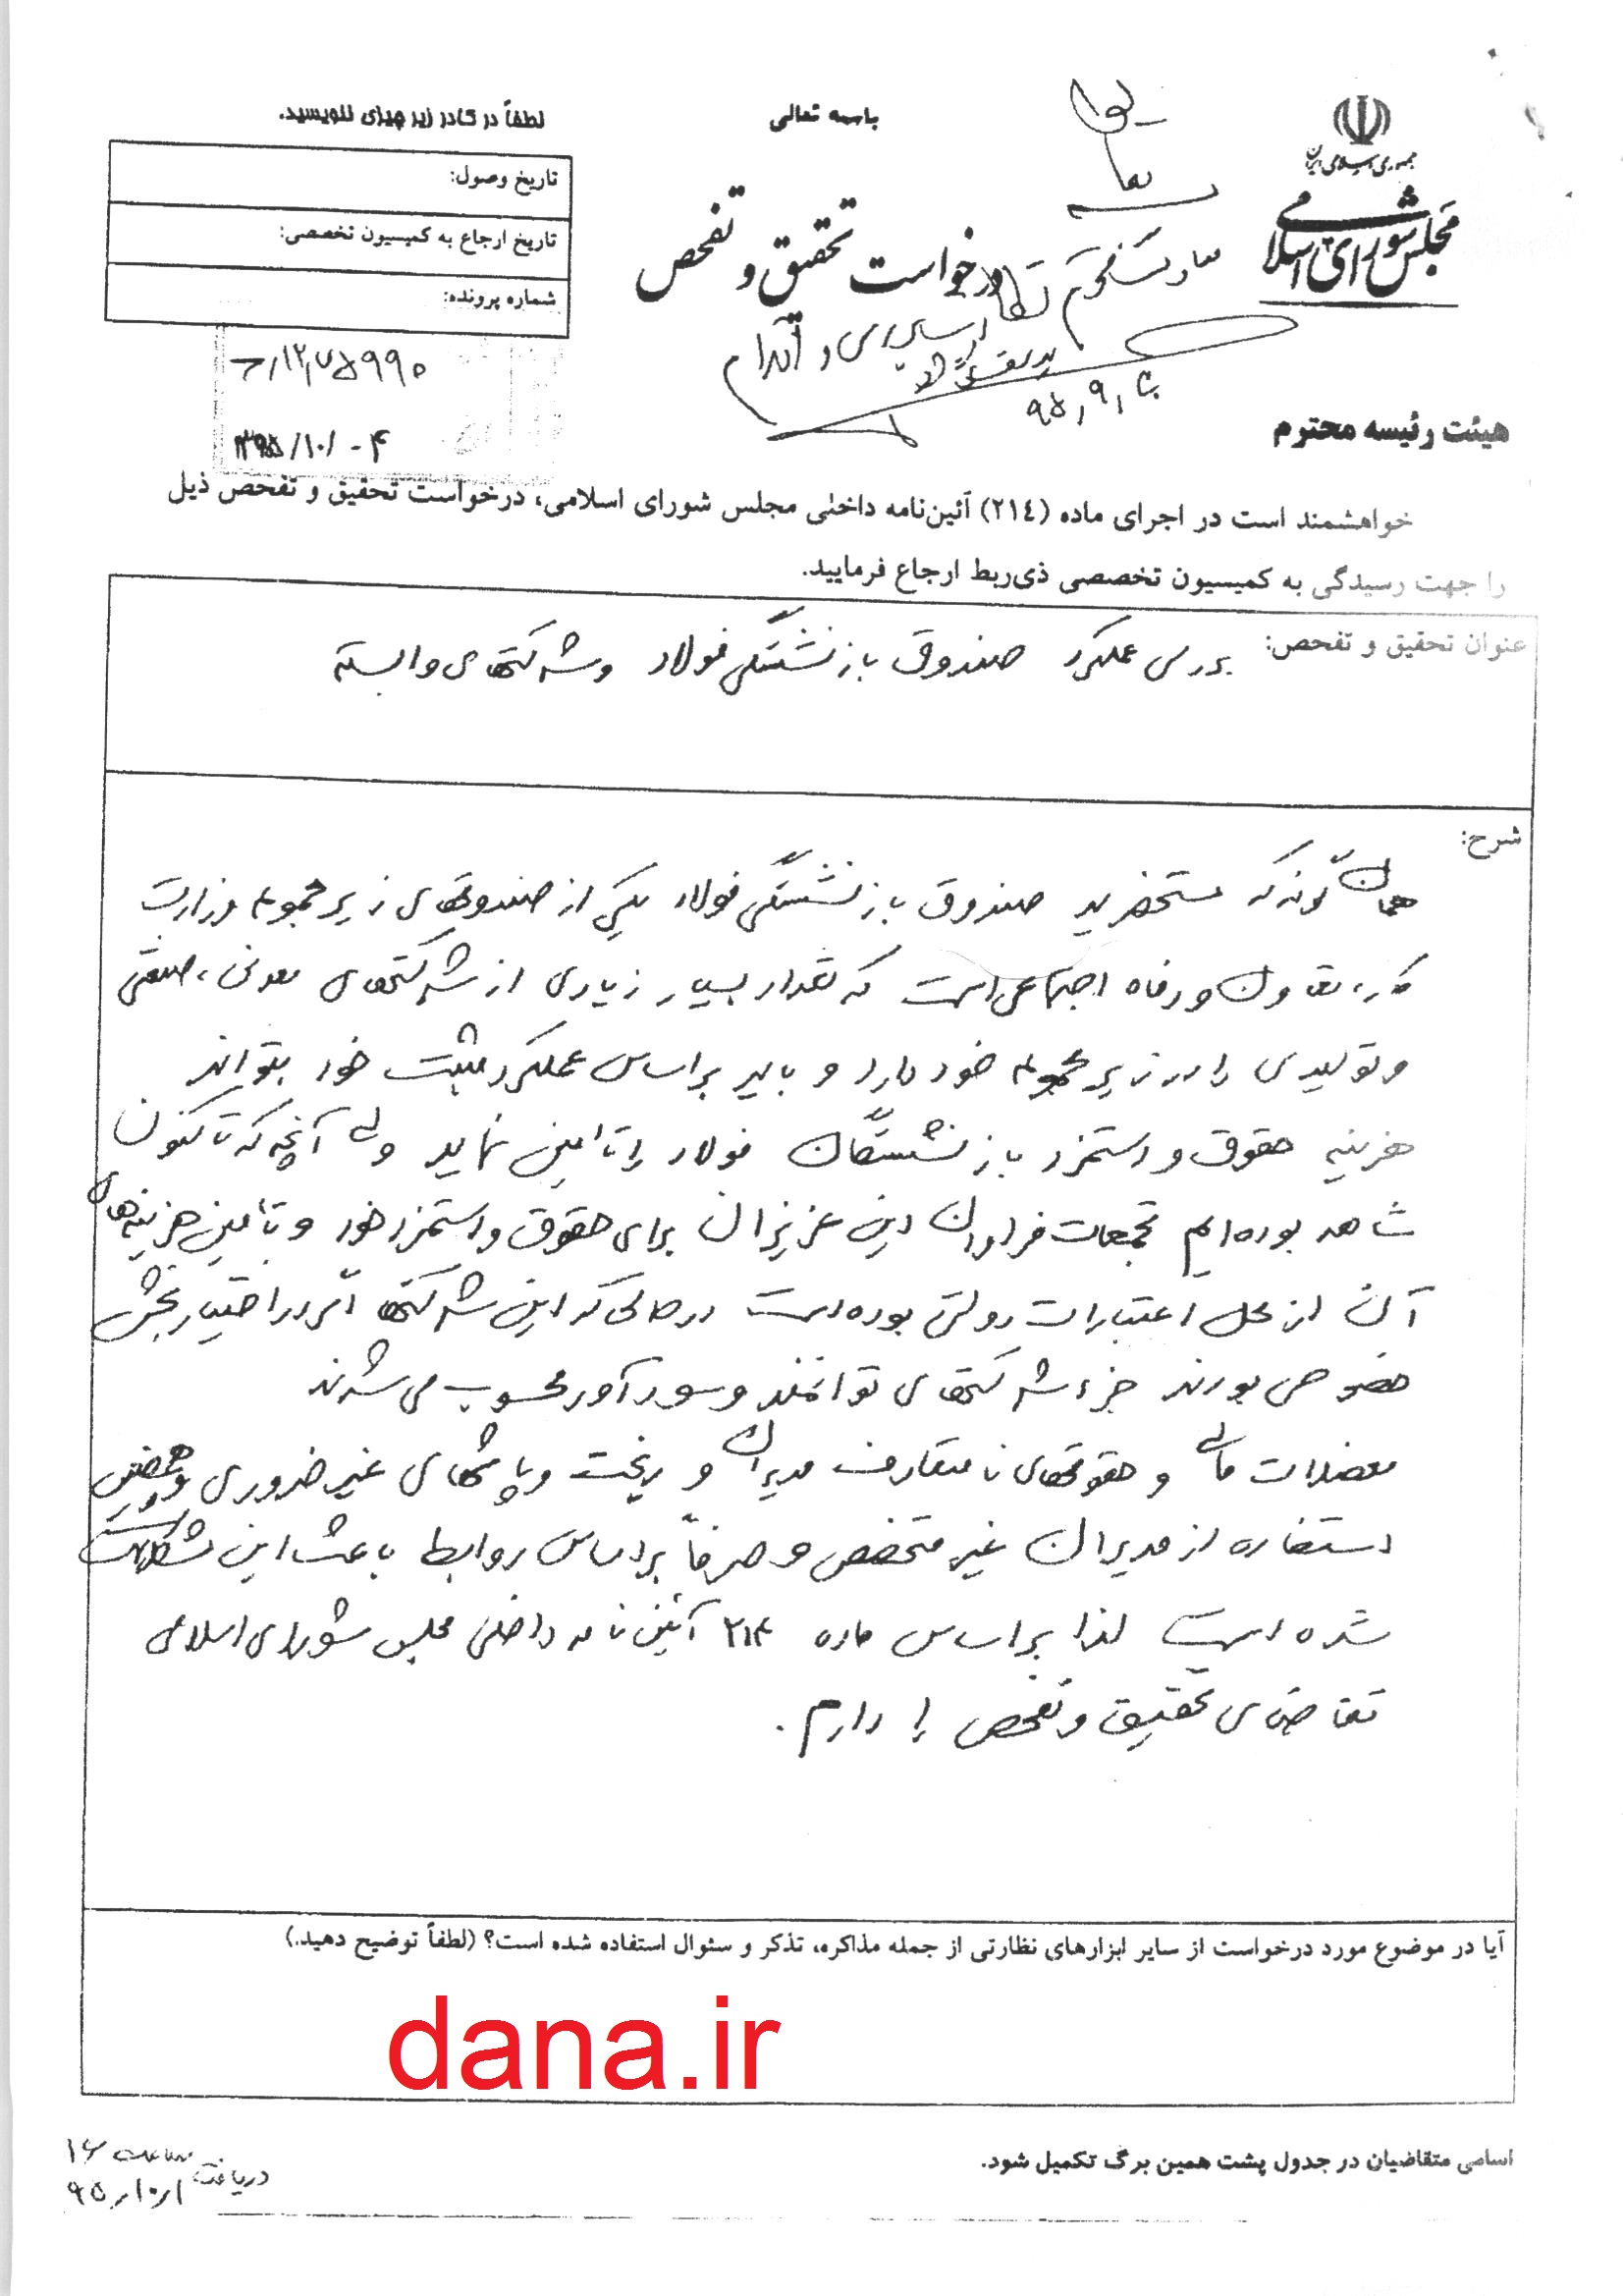 جمهوری اسلامی ایران
مجلس شورای اسلامی
باسمه تعالی
درخواست تحقیق و تفحص
لطفاً در کادر زیر چیزی ننویسید.
تاریخ وصول:
تاریخ ارجاع به کمیسیون تخصصی:
شماره پرونده:
۷۵۹۹۰
۱۳۹۵/۱۰/۰۴
معاونت محترم نظارت
بررسی و اقدام
۹۵/۹/
هیئت رئیسه محترم
خواهشمند است در اجرای ماده (۲۱٤) آئین‌نامه داخلی مجلس شورای اسلامی، درخواست تحقیق و تفحص ذیل
را جهت رسیدگی به کمیسیون تخصصی ذی‌ربط ارجاع فرمایید.
عنوان تحقیق و تفحص: بررسی عملکرد صندوق بازنشستگی فولاد و شرکتهای وابسته
شرح:
همان گونه که مستحضرید صندوق بازنشستگی فولاد یکی از صندوقهای زیر مجموعه وزارت
کار، تعاون و رفاه اجتماعی است که تعداد بسیار زیادی از شرکتهای معدنی، صنعتی
و تولیدی را در زیر مجموعه خود دارد و باید براساس عملکرد مثبت خود بتواند
هزینه حقوق و دستمزد بازنشستگان فولاد را تامین نماید ولی آنچه که تاکنون
شاهد بوده‌ایم تجمعات فراوان این عزیزان برای حقوق و دستمزد خود و تامین هزینه‌های
آن از محل اعتبارات دولتی بوده است در حالی که این شرکتها اگر در اختیار بخش
خصوصی بودند جزء شرکتهای توانمند و سودآور محسوب می‌شدند
معضلات مالی و حقوقهای نامتعارف مدیران و ریخت و پاشهای غیر ضروری و همچنین
استفاده از مدیران غیر متخصص و صرفاً براساس روابط باعث این مشکلات
شده است لذا براساس ماده ۲۱۴ آئین نامه داخلی مجلس شورای اسلامی
تقاضای تحقیق و تفحص را دارم.
آیا در موضوع مورد درخواست از سایر ابزارهای نظارتی از جمله مذاکره، تذکر و سئوال استفاده شده است؟ (لطفاً توضیح دهید.)
dana.ir
اسامی متقاضیان در جدول پشت همین برگ تکمیل شود.
ساعت ۱۶
دریافت ۹۵/۱۰/۱